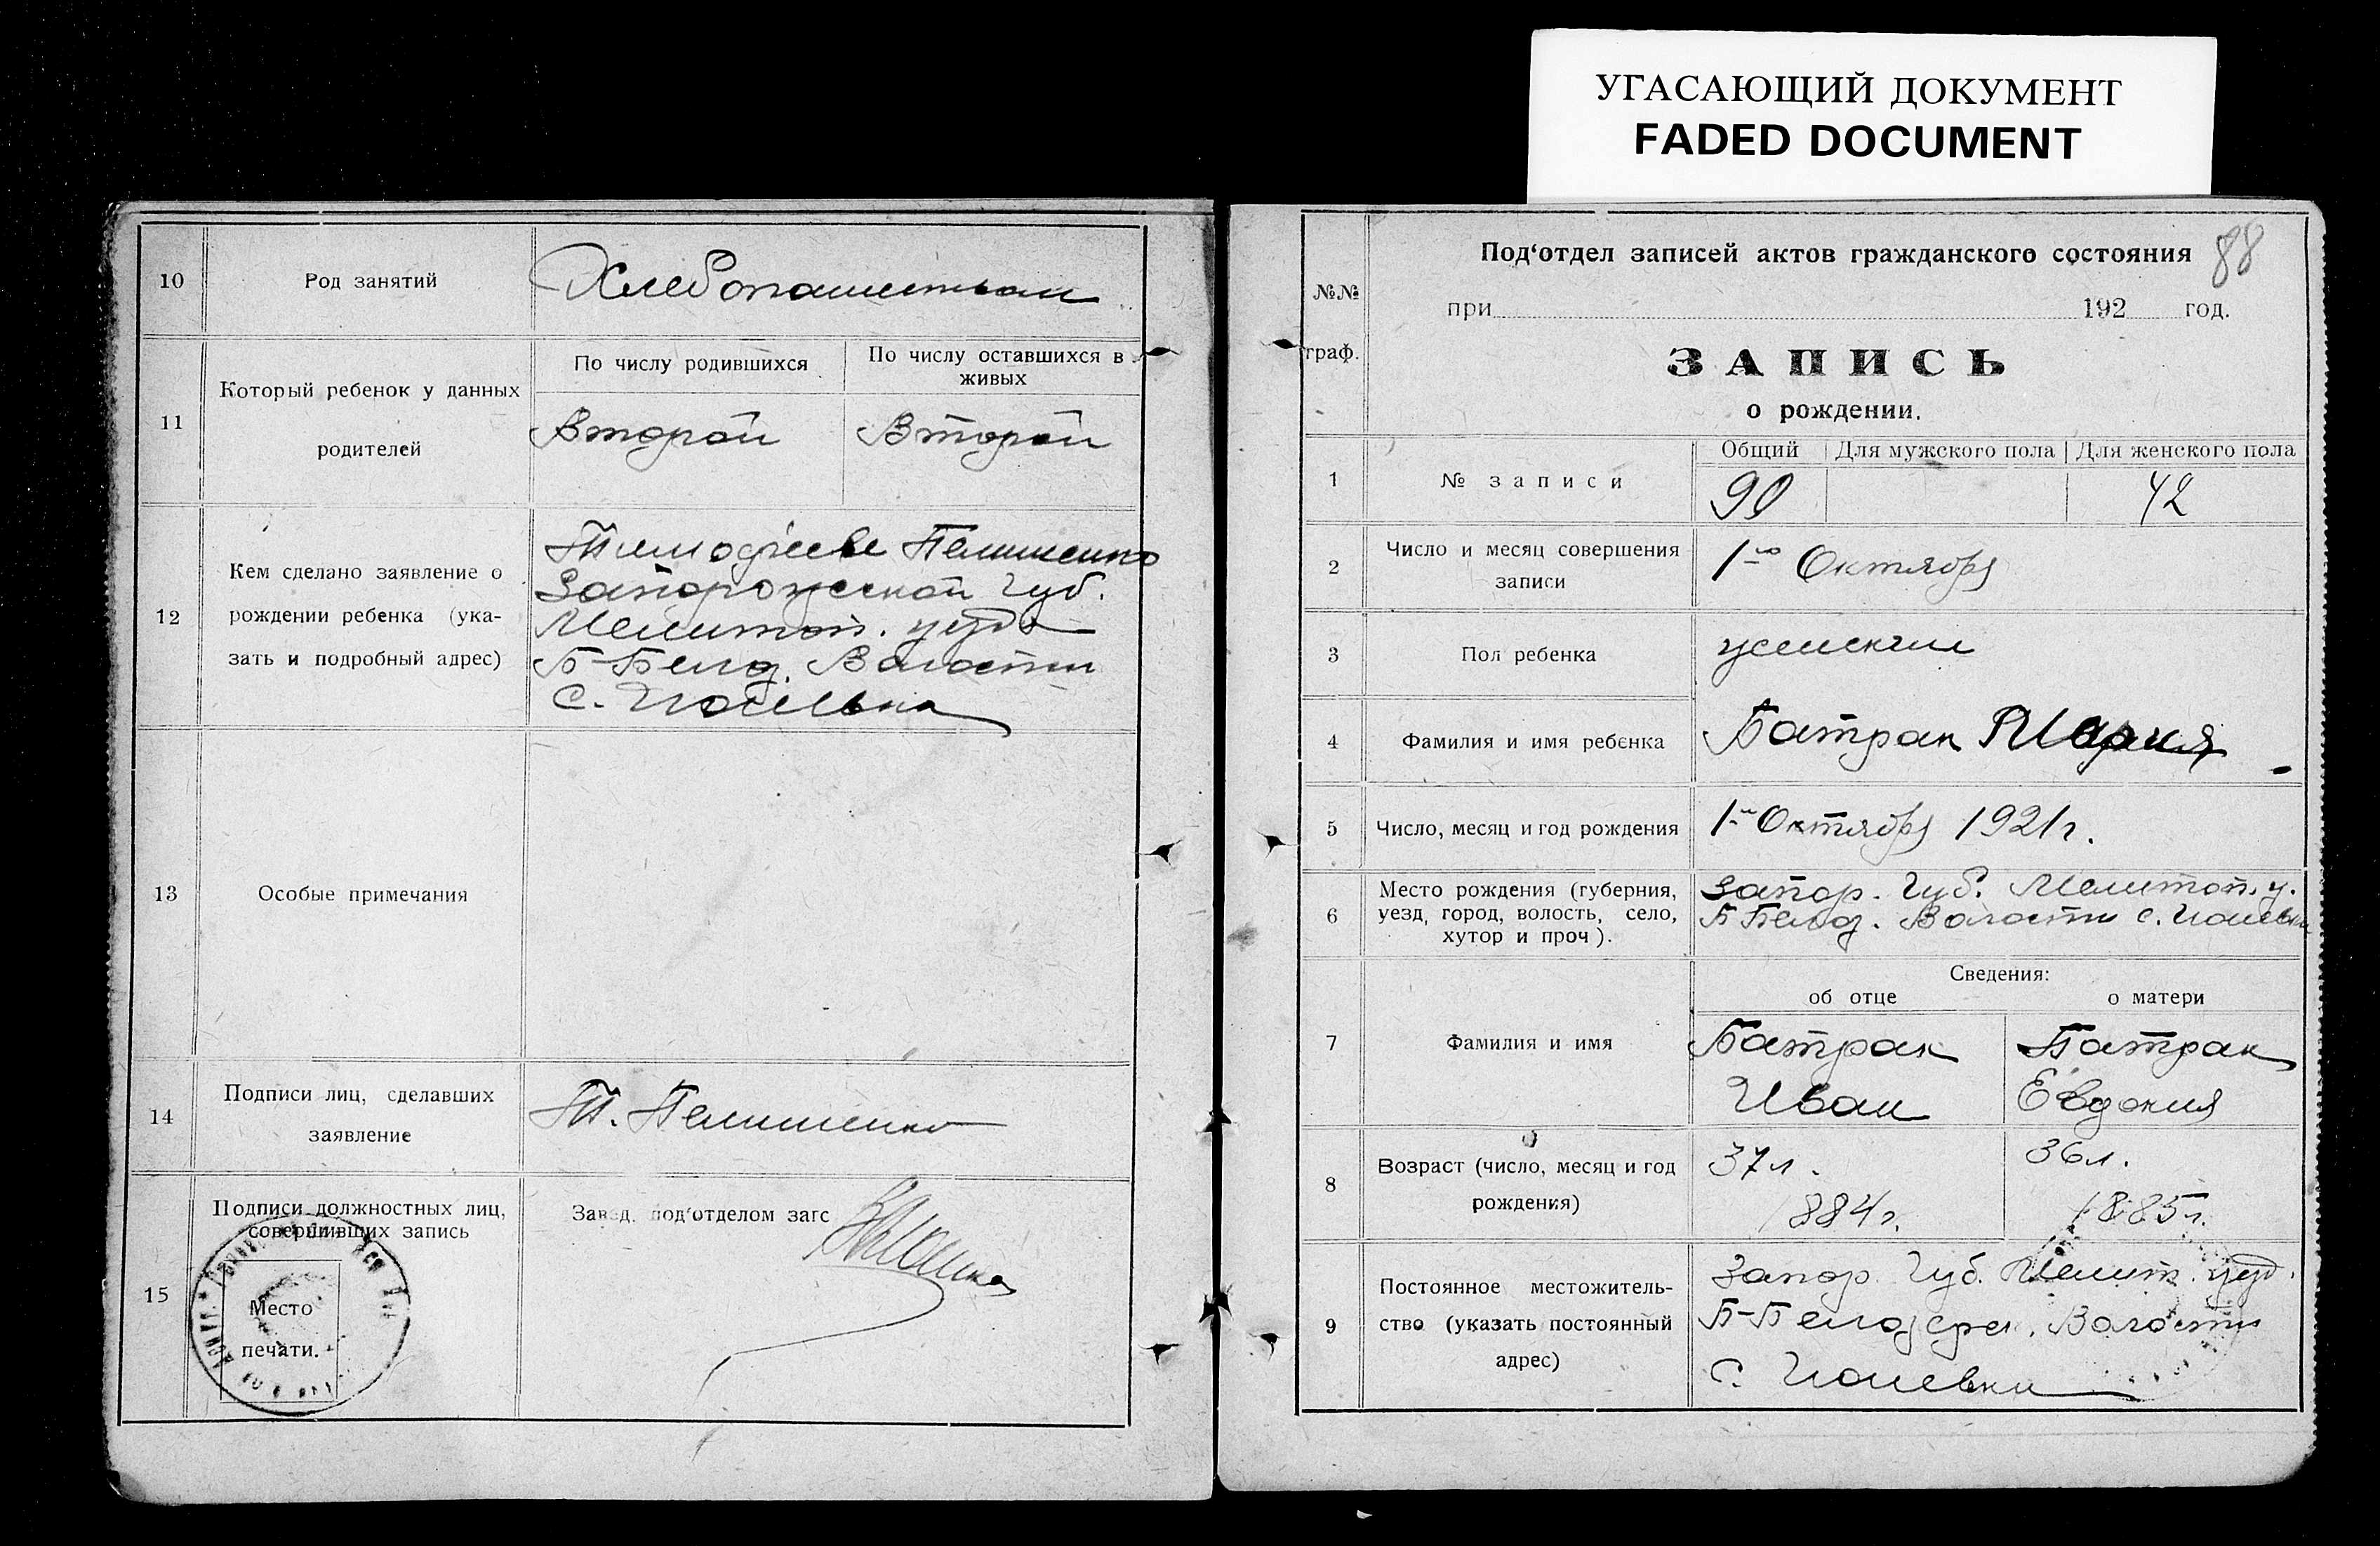 УГАСАЮЩИЙ ДОКУМЕНТ
FADED DOCUMENT
10
Род занятий
Хлебопашеством
11
Который ребенок у данных
родителей
По числу родившихся
По числу оставшихся в
живых
Второй
Второй
12
Кем сделано заявление о
рождении ребенка (ука-
зать и подробный адрес)
Запорожской Губ.
Мелитоп. уезда
Б-Белоз. Волости
с.
13
Особые примечания
14
Подписи лиц, сделавших
заявление
Т.
15
Подписи должностных лиц,
совершивших запись
Место
печати.
Завед. под‘отделом загс
88
№№
граф.
Под‘отдел записей актов гражданского состояния
при 192 год.
ЗАПИСЬ
о рождении.
1
№ записи
Общий
Для мужского пола
Для женского пола
90
42
2
Число и месяц совершения
записи
1-го Октября
3
Пол ребенка
женский
4
Фамилия и имя ребенка
Батрак Мария
5
Число, месяц и год рождения
1-го Октября 1921 г.
6
Место рождения (губерния,
уезд, город, волость, село,
хутор и проч).
Запор. Губ. Мелитоп. у.
Б Белоз. Волости с.
Сведения:
об отце
о матери
7
Фамилия и имя
Батрак
Иван
Батрак
Евдокия
8
Возраст (число, месяц и год
рождения)
37 л.
1884 г.
36 л.
1885 г.
9
Постоянное местожитель-
ство (указать постоянный
адрес)
Запор. Губ. Мелит. уезд.
Б-Белозерс. Волости
с.